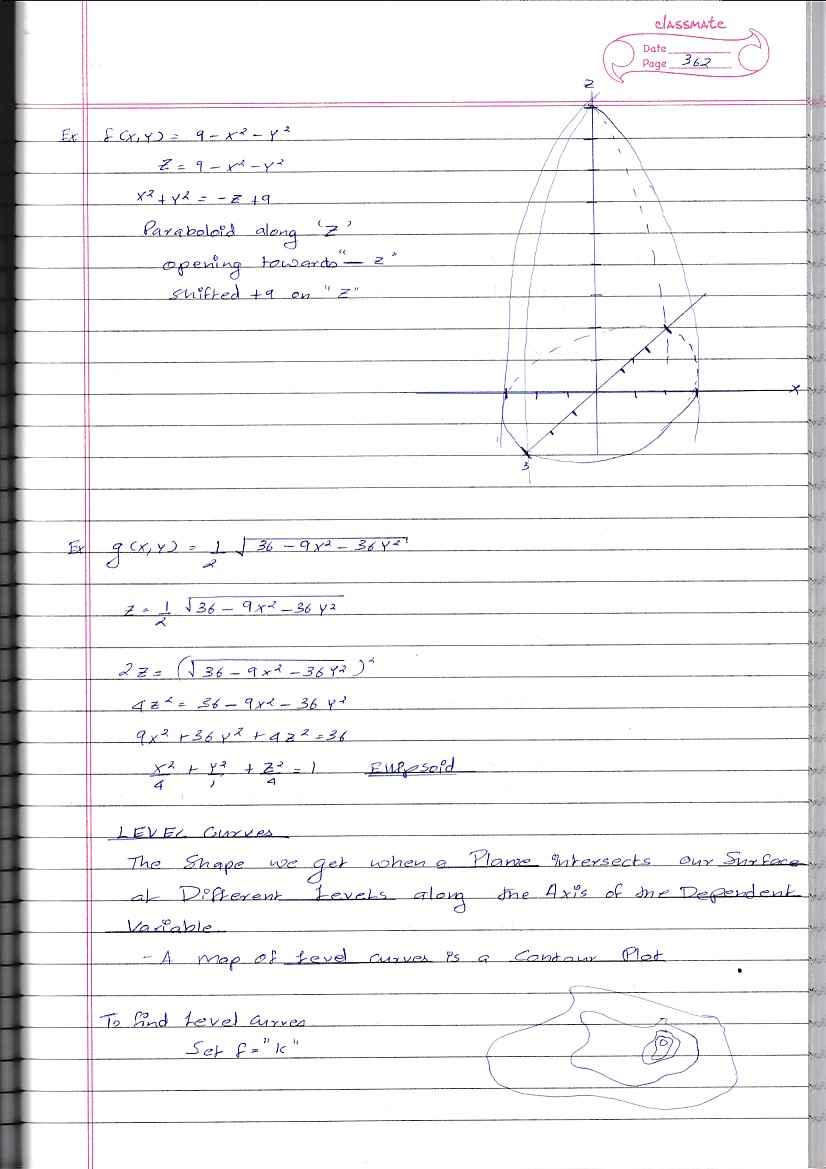 classmate
Date
Page 362
Z
Ex f(x,y) = 9 - x² - y²
Z = 9 - x² - y²
x² + y² = -z + 9
Paraboloid along 'Z'
opening towards "- z"
shifted +9 on "Z"
x
3
Ex g(x,y) = 1/2 √(36 - 9x² - 36y²)
z = 1/2 √(36 - 9x² - 36y²)
2z = (√(36 - 9x² - 36y²))²
4z² = 36 - 9x² - 36y²
9x² + 36y² + 4z² = 36
x²/4 + y²/1 + z²/4 = 1 Ellipsoid
LEVEL Curves
The Shape we get when a Plane intersects our Surface
at Different Levels along the Axis of the Dependent
Variable
- A map of Level curves is a Contour Plot
To find Level curves
Set f = "k"